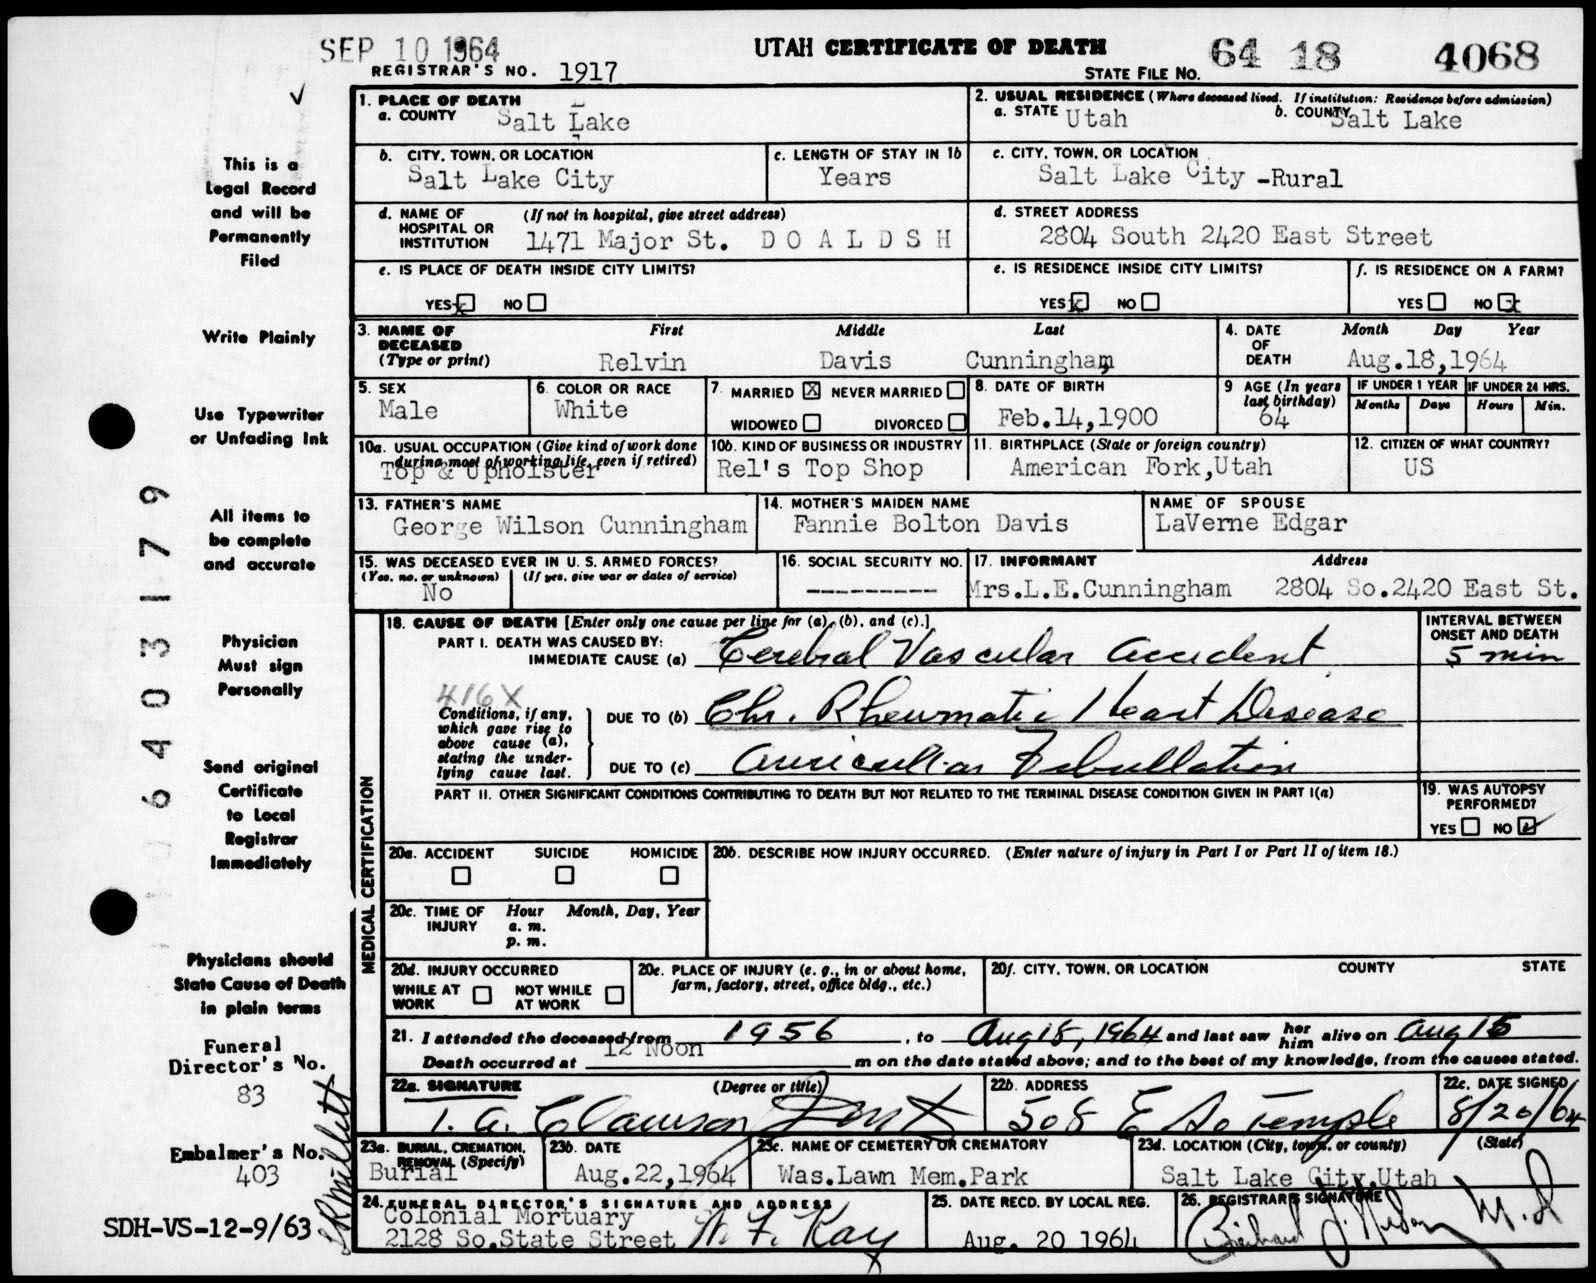 SEP 10 1964
UTAH CERTIFICATE OF DEATH
64 18 4068
REGISTRAR'S NO. 1917
STATE FILE NO.
This is a
Legal Record
and will be
Permanently
Filed
Write Plainly
Use Typewriter
or Unfading Ink
All items to
be complete
and accurate
Physician
Must sign
Personally
Send original
Certificate
to Local
Registrar
Immediately
Physicians should
State Cause of Death
in plain terms
Funeral
Director's No.
83
Embalmer's No.
403
SDH-VS-12-9/63
6403179
1. PLACE OF DEATH
a. COUNTY Salt Lake
2. USUAL RESIDENCE (Where deceased lived. If institution: Residence before admission)
a. STATE Utah b. COUNTY Salt Lake
b. CITY, TOWN, OR LOCATION
Salt Lake City
c. LENGTH OF STAY IN 1b
Years
c. CITY, TOWN, OR LOCATION
Salt Lake City -Rural
d. NAME OF HOSPITAL OR INSTITUTION (If not in hospital, give street address)
1471 Major St. D O A L D S H
d. STREET ADDRESS
2804 South 2420 East Street
e. IS PLACE OF DEATH INSIDE CITY LIMITS?
YES x NO
e. IS RESIDENCE INSIDE CITY LIMITS?
YES x NO
f. IS RESIDENCE ON A FARM?
YES NO x
3. NAME OF DECEASED (Type or print)
First Middle Last
Relvin Davis Cunningham,
4. DATE OF DEATH Month Day Year
Aug.18,1964
5. SEX
Male
6. COLOR OR RACE
White
7. MARRIED X NEVER MARRIED
WIDOWED DIVORCED
8. DATE OF BIRTH
Feb.14,1900
9 AGE (In years last birthday)
64
IF UNDER 1 YEAR
Months Days
IF UNDER 24 HRS.
Hours Min.
10a. USUAL OCCUPATION (Give kind of work done during most of working life, even if retired)
Top & Upholster
10b. KIND OF BUSINESS OR INDUSTRY
Rel's Top Shop
11. BIRTHPLACE (State or foreign country)
American Fork,Utah
12. CITIZEN OF WHAT COUNTRY?
US
13. FATHER'S NAME
George Wilson Cunningham
14. MOTHER'S MAIDEN NAME
Fannie Bolton Davis
NAME OF SPOUSE
LaVerne Edgar
15. WAS DECEASED EVER IN U. S. ARMED FORCES?
(Yes, no, or unknown) (If yes, give war or dates of service)
No
16. SOCIAL SECURITY NO.
---------
17. INFORMANT Address
Mrs.L.E.Cunningham 2804 So.2420 East St.
MEDICAL CERTIFICATION
18. CAUSE OF DEATH [Enter only one cause per line for (a), (b), and (c).]
PART I. DEATH WAS CAUSED BY:
IMMEDIATE CAUSE (a) Cerebral Vascular Accident
INTERVAL BETWEEN ONSET AND DEATH
5 min
416X
Conditions, if any, which gave rise to above cause (a), stating the underlying cause last.
DUE TO (b) Chr. Rheumatic Heart Disease
DUE TO (c) Auricullar Fibullation
PART II. OTHER SIGNIFICANT CONDITIONS CONTRIBUTING TO DEATH BUT NOT RELATED TO THE TERMINAL DISEASE CONDITION GIVEN IN PART I(a)
19. WAS AUTOPSY PERFORMED?
YES NO
20a. ACCIDENT SUICIDE HOMICIDE
20b. DESCRIBE HOW INJURY OCCURRED. (Enter nature of injury in Part I or Part II of item 18.)
20c. TIME OF INJURY Hour Month, Day, Year
a. m.
p. m.
20d. INJURY OCCURRED
WHILE AT WORK NOT WHILE AT WORK
20e. PLACE OF INJURY (e. g., in or about home, farm, factory, street, office bldg., etc.)
20f. CITY, TOWN, OR LOCATION COUNTY STATE
21. I attended the deceased from 1956, to Aug 18, 1964 and last saw her him alive on Aug 15
Death occurred at 12 Noon m on the date stated above; and to the best of my knowledge, from the causes stated.
22a. SIGNATURE (Degree or title)
T. A. Clawson
22b. ADDRESS
508 E So Temple
22c. DATE SIGNED
8/20/64
23a. BURIAL, CREMATION, REMOVAL (Specify)
Burial
23b. DATE
Aug.22,1964
23c. NAME OF CEMETERY OR CREMATORY
Was.Lawn Mem.Park
23d. LOCATION (City, town, or county) (State)
Salt Lake City,Utah
24. FUNERAL DIRECTOR'S SIGNATURE AND ADDRESS
Colonial Mortuary
2128 So.State Street
25. DATE RECD. BY LOCAL REG.
Aug. 20 1964
26. REGISTRAR'S SIGNATURE
M.D